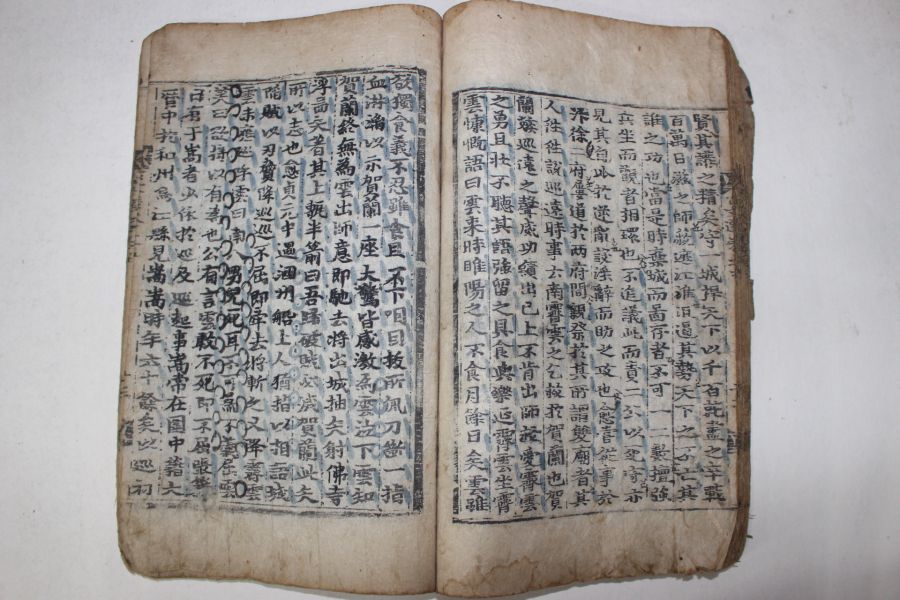 賢其講之精矣守一城捍天下以千百就盡之卒戰
百萬日滋之師蔽遮江淮沮遏其勢天下之不亡其
誰之功也當是時棄城而圖存者不可一二數擅強
兵坐而觀者相環也不追議此而責二公以死守亦
見其自比於逆亂設淫辭而助之攻也愈嘗從事於
汴徐二府屢道於兩府間親祭於其所謂雙廟者其
人往往說巡遠時事云南霽雲之乞救於賀蘭也賀
蘭嫉巡遠之聲威功績出己上不肯出師救愛霽雲
之勇且壯不聽其語強留之具食與樂延霽雲坐霽
雲慷慨語曰雲來時睢陽之人不食月餘日矣雲雖
欲獨食義不忍雖食且不下咽因拔所佩刀斷一指
血淋漓以示賀蘭一座大驚皆感激為雲泣下雲知
賀蘭終無為雲出師意即馳去將出城抽矢射佛寺
浮啚矢著其上甎半箭曰吾歸破賊必滅賀蘭此矢
所以志也愈貞元中過泗州船上人猶指以相語城
陷賊以刃脅降巡巡不屈即牽去將斬之又降霽雲
雲未應巡呼雲曰南 男兒死耳不可為不義屈雲
笑曰欲將以有為也公有言雲敢不死即不屈張籍
曰有于嵩者少依於巡及巡起事嵩常在圍中籍大
曆中於和州烏江縣見嵩嵩時年六十餘矣以巡初